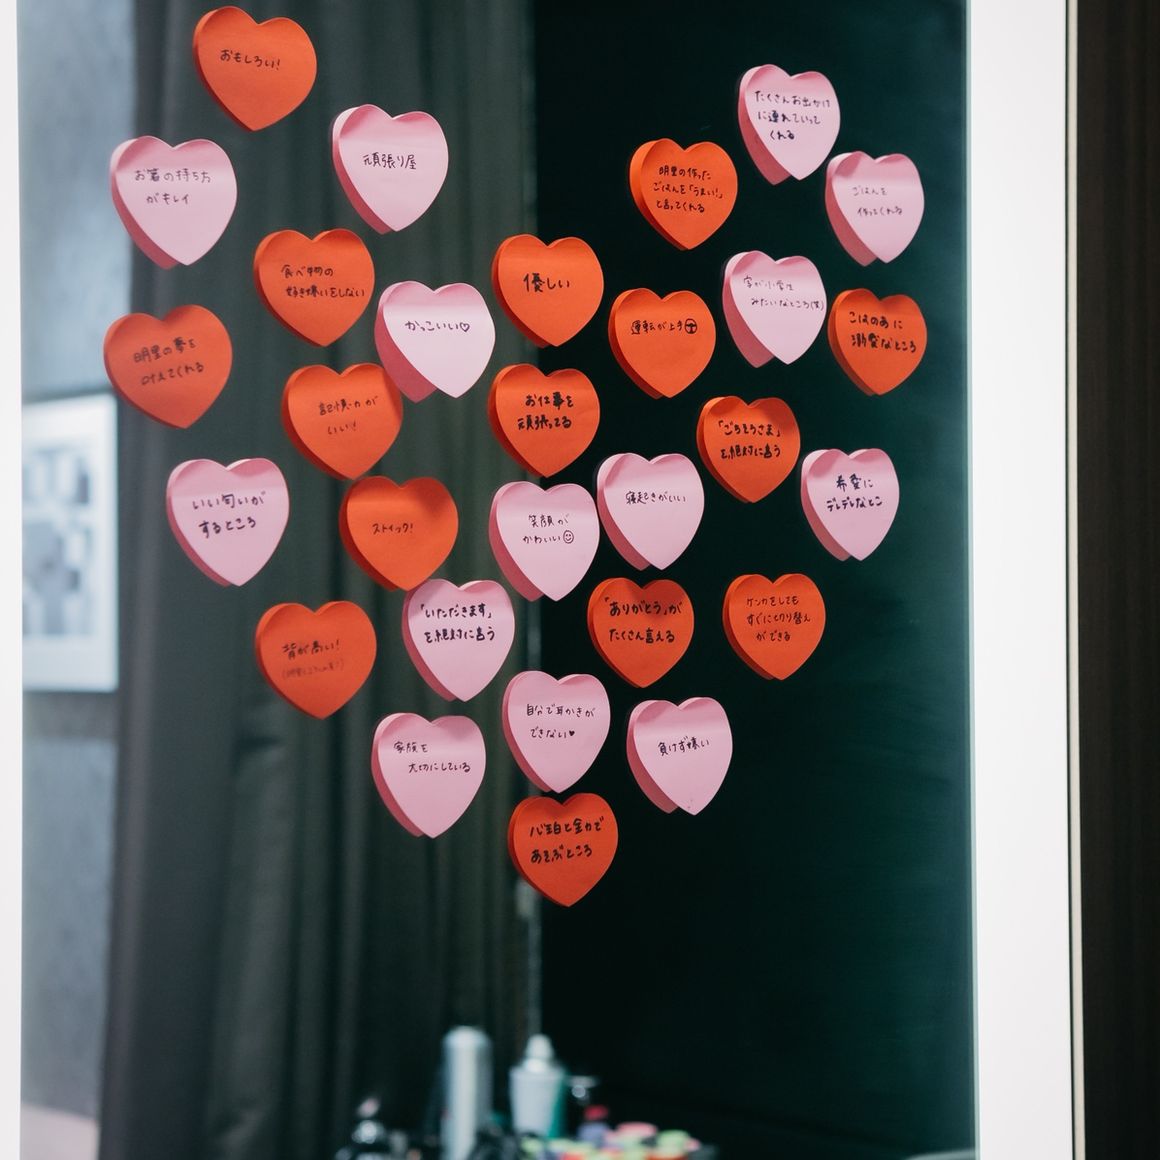 おもしろい!
頑張り屋
お箸の持ち方
がキレイ
たくさんお出かけ
に連れていって
くれる
明里の作った
ごはんを「うまい!」
と言ってくれる
ごはんを
作ってくれる
食べ物の
好き嫌いをしない
優しい
かっこいい♡
字が小学生
みたいなところ(笑)
運転が上手
こはのあに
溺愛なところ
明里の夢を
叶えてくれる
記憶力が
いい!
お仕事を
頑張ってる
「ごちそうさま」
を絶対に言う
いい匂いが
するところ
ストイック!
笑顔が
かわいい☺
寝起きがいい
希愛に
デレデレなとこ
背が高い!
「いただきます」
を絶対に言う
「ありがとう」が
たくさん言える
ケンカをしても
すぐに切り替え
ができる
家族を
大切にしている
自分で耳かきが
できない♥
負けず嫌い
心羽と全力で
あそぶところ